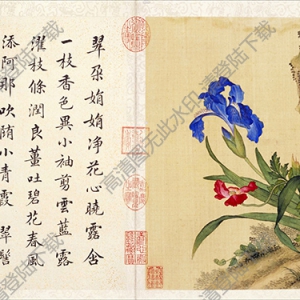 翠朵娟娟净花心曉露含
一枝香色異小袖剪雲藍露
濯枝條潤良薑吐碧花春風
添阿那吹小青霞 翠髻
高清图无此水印 请登陆下载
请登陆下载
请登陆下载